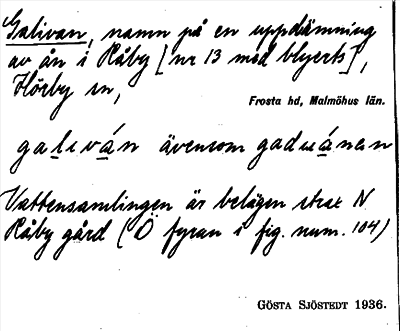 Galivan, namn på en uppdämning
av ån i Råby [nr 13 med blyerts],
Hörby sn,
Frosta hd, Malmöhus län.
galiván ävensom gaduánen
Vattensamlingen är belägen strax N
Råby gård (Ö fyran i fig. num. 104)
GÖSTA SJÖSTEDT 1936.